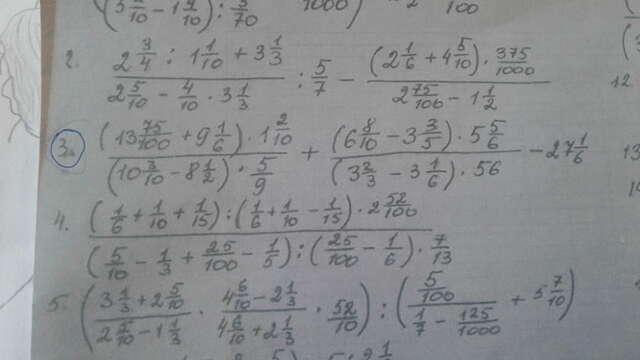 − 1 /10) : 5/70 1000 ) 100
2. (2 3/4 : 1 1/10 + 3 1/3) / (2 5/10 − 4/10 · 3 1/3) : 5/7 − ((2 1/6 + 4 5/10) · 375/1000) / (2 75/100 − 1 1/2) 12.
3. ((13 75/100 + 9 1/6) · 1 2/10) / ((10 3/10 − 8 1/2) · 5/9) + ((6 8/10 − 3 3/5) · 5 5/6) / ((3 2/3 − 3 1/6) · 56) − 27 1/6 13
4. ((1/6 + 1/10 + 1/15) : (1/6 + 1/10 − 1/15) · 2 52/100) / ((5/10 − 1/3 + 25/100 − 1/5) : (25/100 − 1/6) · 7/13)
5. ((3 1/3 + 2 5/10) / (2 5/10 − 1 1/3) · (4 6/10 − 2 1/3) / (4 6/10 + 2 1/3) · 52/10) : ((5/100) / (1/7 − 125/1000) + 5 7/10)